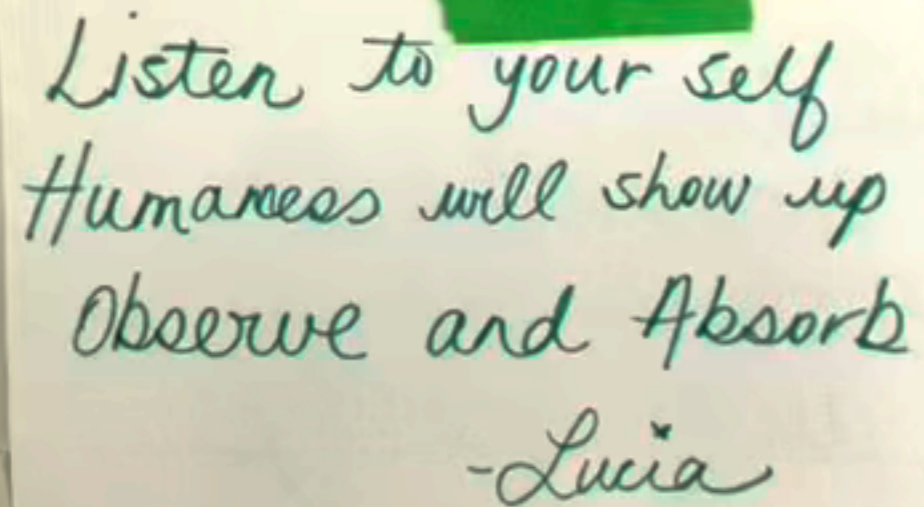 Listen to your self
Humaness will show up
Observe and Absorb
-Lucia